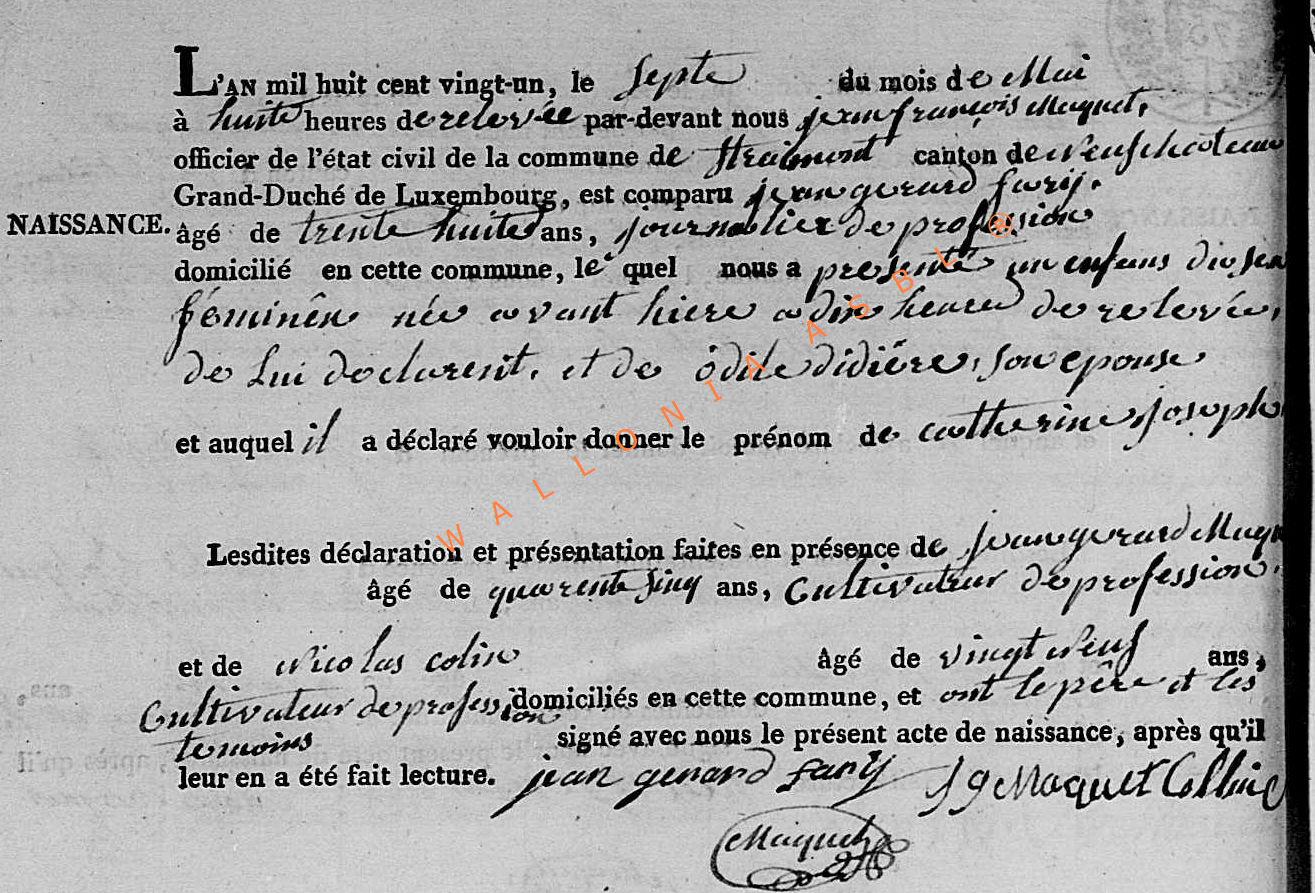 L'AN mil huit cent vingt-un, le septe du mois de Mai
à huite heures de relevée par-devant nous jean françois Maquet,
officier de l'état civil de la commune de Straimont canton de Neufchateau
Grand-Duché de Luxembourg, est comparu jean gerard fary.
NAISSANCE. âgé de trente huite ans, journalier de profession
domicilié en cette commune, le quel nous a presenté un enfans du sex
féminën née avant hiere a dix heures de relevée,
de lui declarent, et de odile didiére, son epouse
et auquel il a déclaré vouloir donner le prénom de catherine joseph
Lesdites déclaration et présentation faites en présence de jean gerard Maq
âgé de quarente sinq ans, Cultivateur de profession.
et de Nicolas colin âgé de vingt neuf ans,
Cultivateur de profession domiciliés en cette commune, et ont le père et les
temoins signé avec nous le présent acte de naissance, après qu'il
leur en a été fait lecture. jean gerard fary J g Maquet Collin
Maquet
WALLONIA ASBL ®